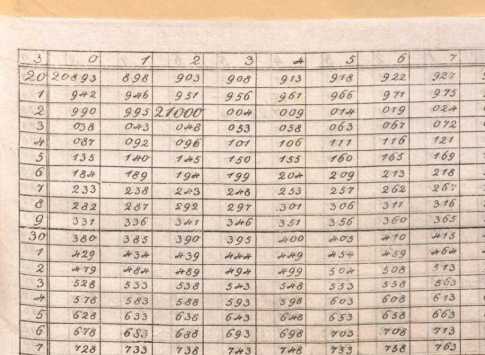 3 0 1 2 3 4 5 6 7
20 20893 898 903 908 913 918 922 927
1 942 946 951 956 961 966 971 975
2 990 995 21000 004 009 014 019 024
3 038 043 048 053 058 063 067 072
4 087 092 096 101 106 111 116 121
5 135 140 145 150 155 160 165 169
6 184 189 194 199 204 209 213 218
7 233 238 243 248 253 257 262 267
8 282 287 292 297 301 306 311 316
9 331 336 341 346 351 356 360 365
30 380 385 390 395 400 405 410 415
1 429 434 439 444 449 454 459 464
2 479 484 489 494 499 504 508 513
3 528 533 538 543 548 553 558 563
4 578 583 588 593 598 603 608 613
5 628 633 638 643 648 653 658 663
6 678 683 688 693 698 703 708 713
7 728 733 738 743 748 753 758 763